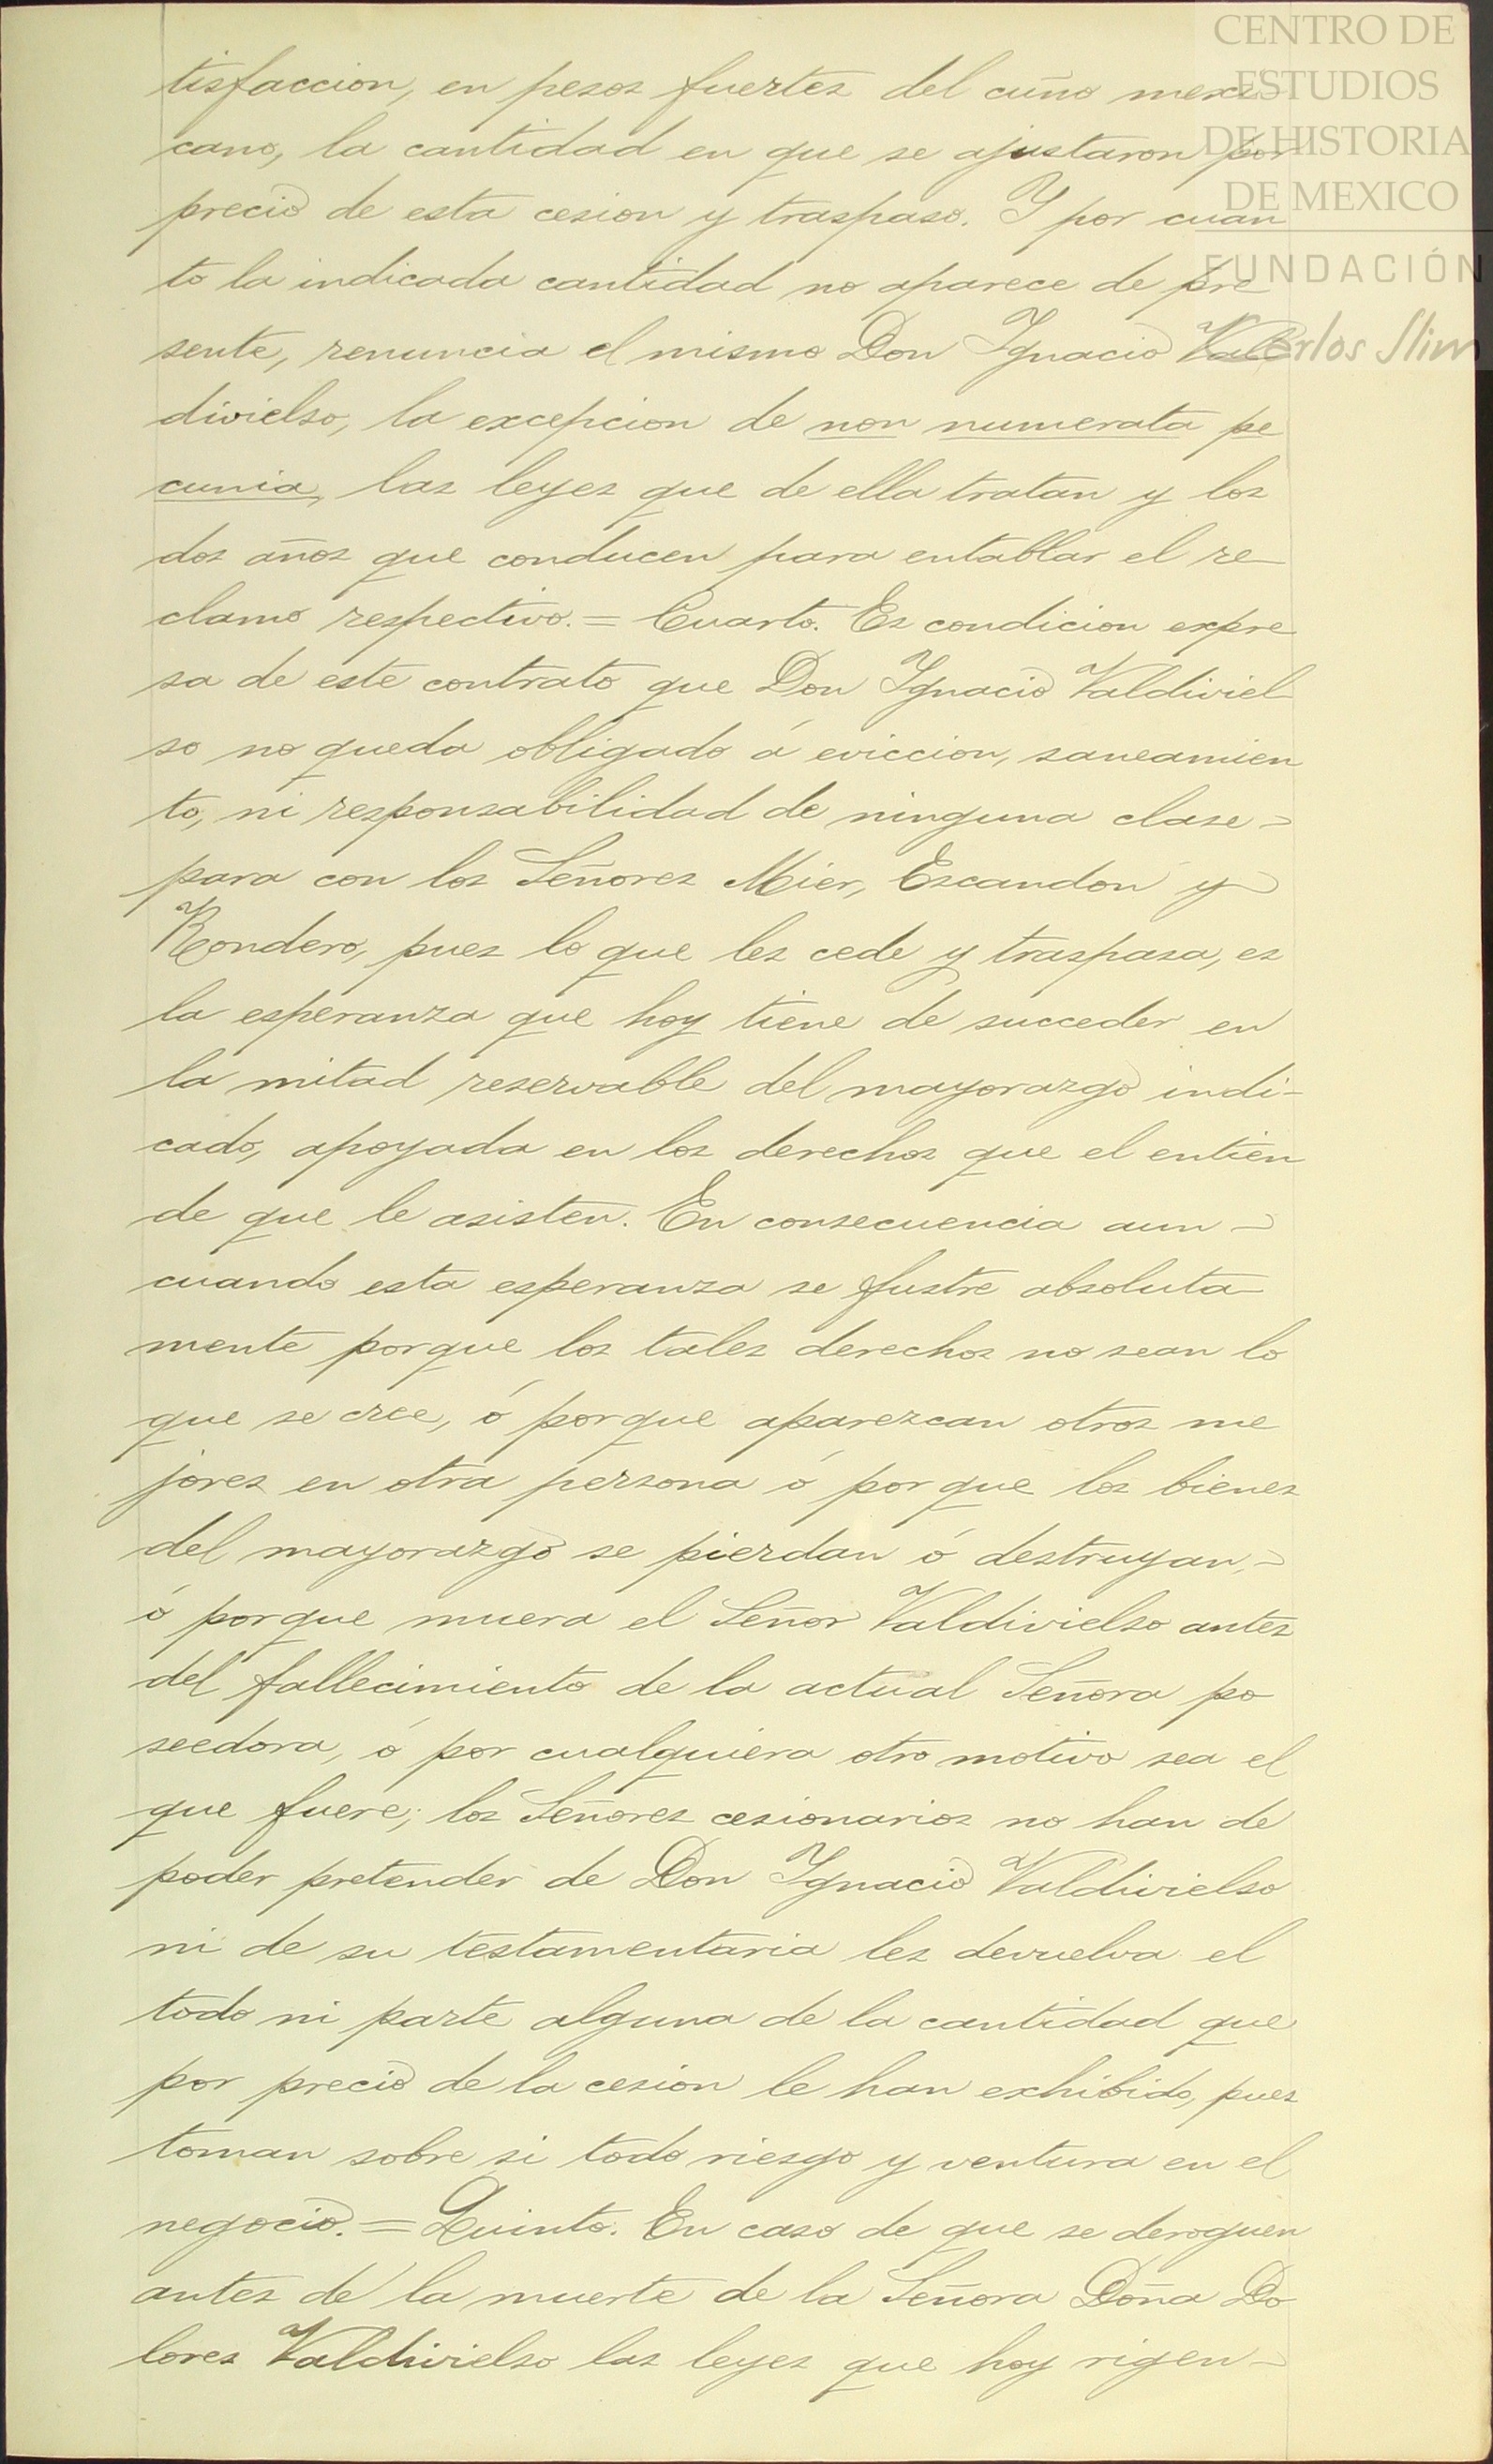 CENTRO DE
ESTUDIOS
DE HISTORIA
DE MEXICO
FUNDACIÓN
Carlos Slim
tisfaccion, en pesos fuertes del cuño mexi
cano, la cantidad en que se ajustaron por
precio de esta cesion y traspaso. Y por cuan
to la indicada cantidad no aparece de pre
sente, renuncia el mismo Don Ignacio Val
divielso, la excepcion de non numerata pe
cunia, las leyes que de ella tratan y los
dos años que conducen para entablar el re
clamo respectivo. = Cuarto. Es condicion expre
sa de este contrato que Don Ignacio Valdiviel
so no queda obligado á eviccion, saneamien
to, ni responsabilidad de ninguna clase-
para con los Señores Mier, Escandon y
Rondero, pues lo que les cede y traspasa, es
la esperanza que hoy tiene de succeder en
la mitad reservable del mayorazgo indi-
cado, apoyada en los derechos que el entien
de que le asisten. En consecuencia aun-
cuando esta esperanza se fustre absoluta-
mente porque los tales derechos no sean lo
que se cree, ó porque aparezcan otros me
jores en otra persona ó por que los bienes
del mayorazgo se pierdan ó destruyan,-
ó porque muera el Señor Valdivielso antes
del fallecimiento de la actual Señora po
seedora, ó por cualquiera otro motivo sea el
que fuere; los Señores cesionarios no han de
poder pretender de Don Ignacio Valdivielso
ni de su testamentaria les devuelva el
todo ni parte alguna de la cantidad que
por precio de la cesion le han exhibido, pues
toman sobre si todo riesgo y ventura en el
negocio. = Quinto. En caso de que se deroguen
antes de la muerte de la Señora Doña Do
lores Valdivielso las leyes que hoy rigen-